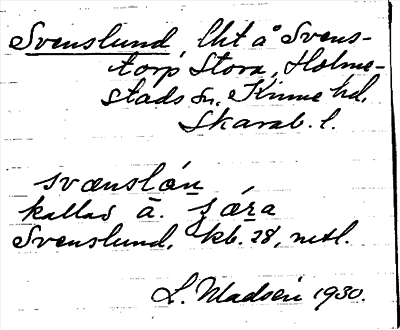 Svenslund, lht å Svens-
torp Stora, Holme-
stads sn. Kinne hd.
Skarab. l.
svænslón
kallas ä.
Svenslund, kb. 28, netl.
L. Madsén 1930.